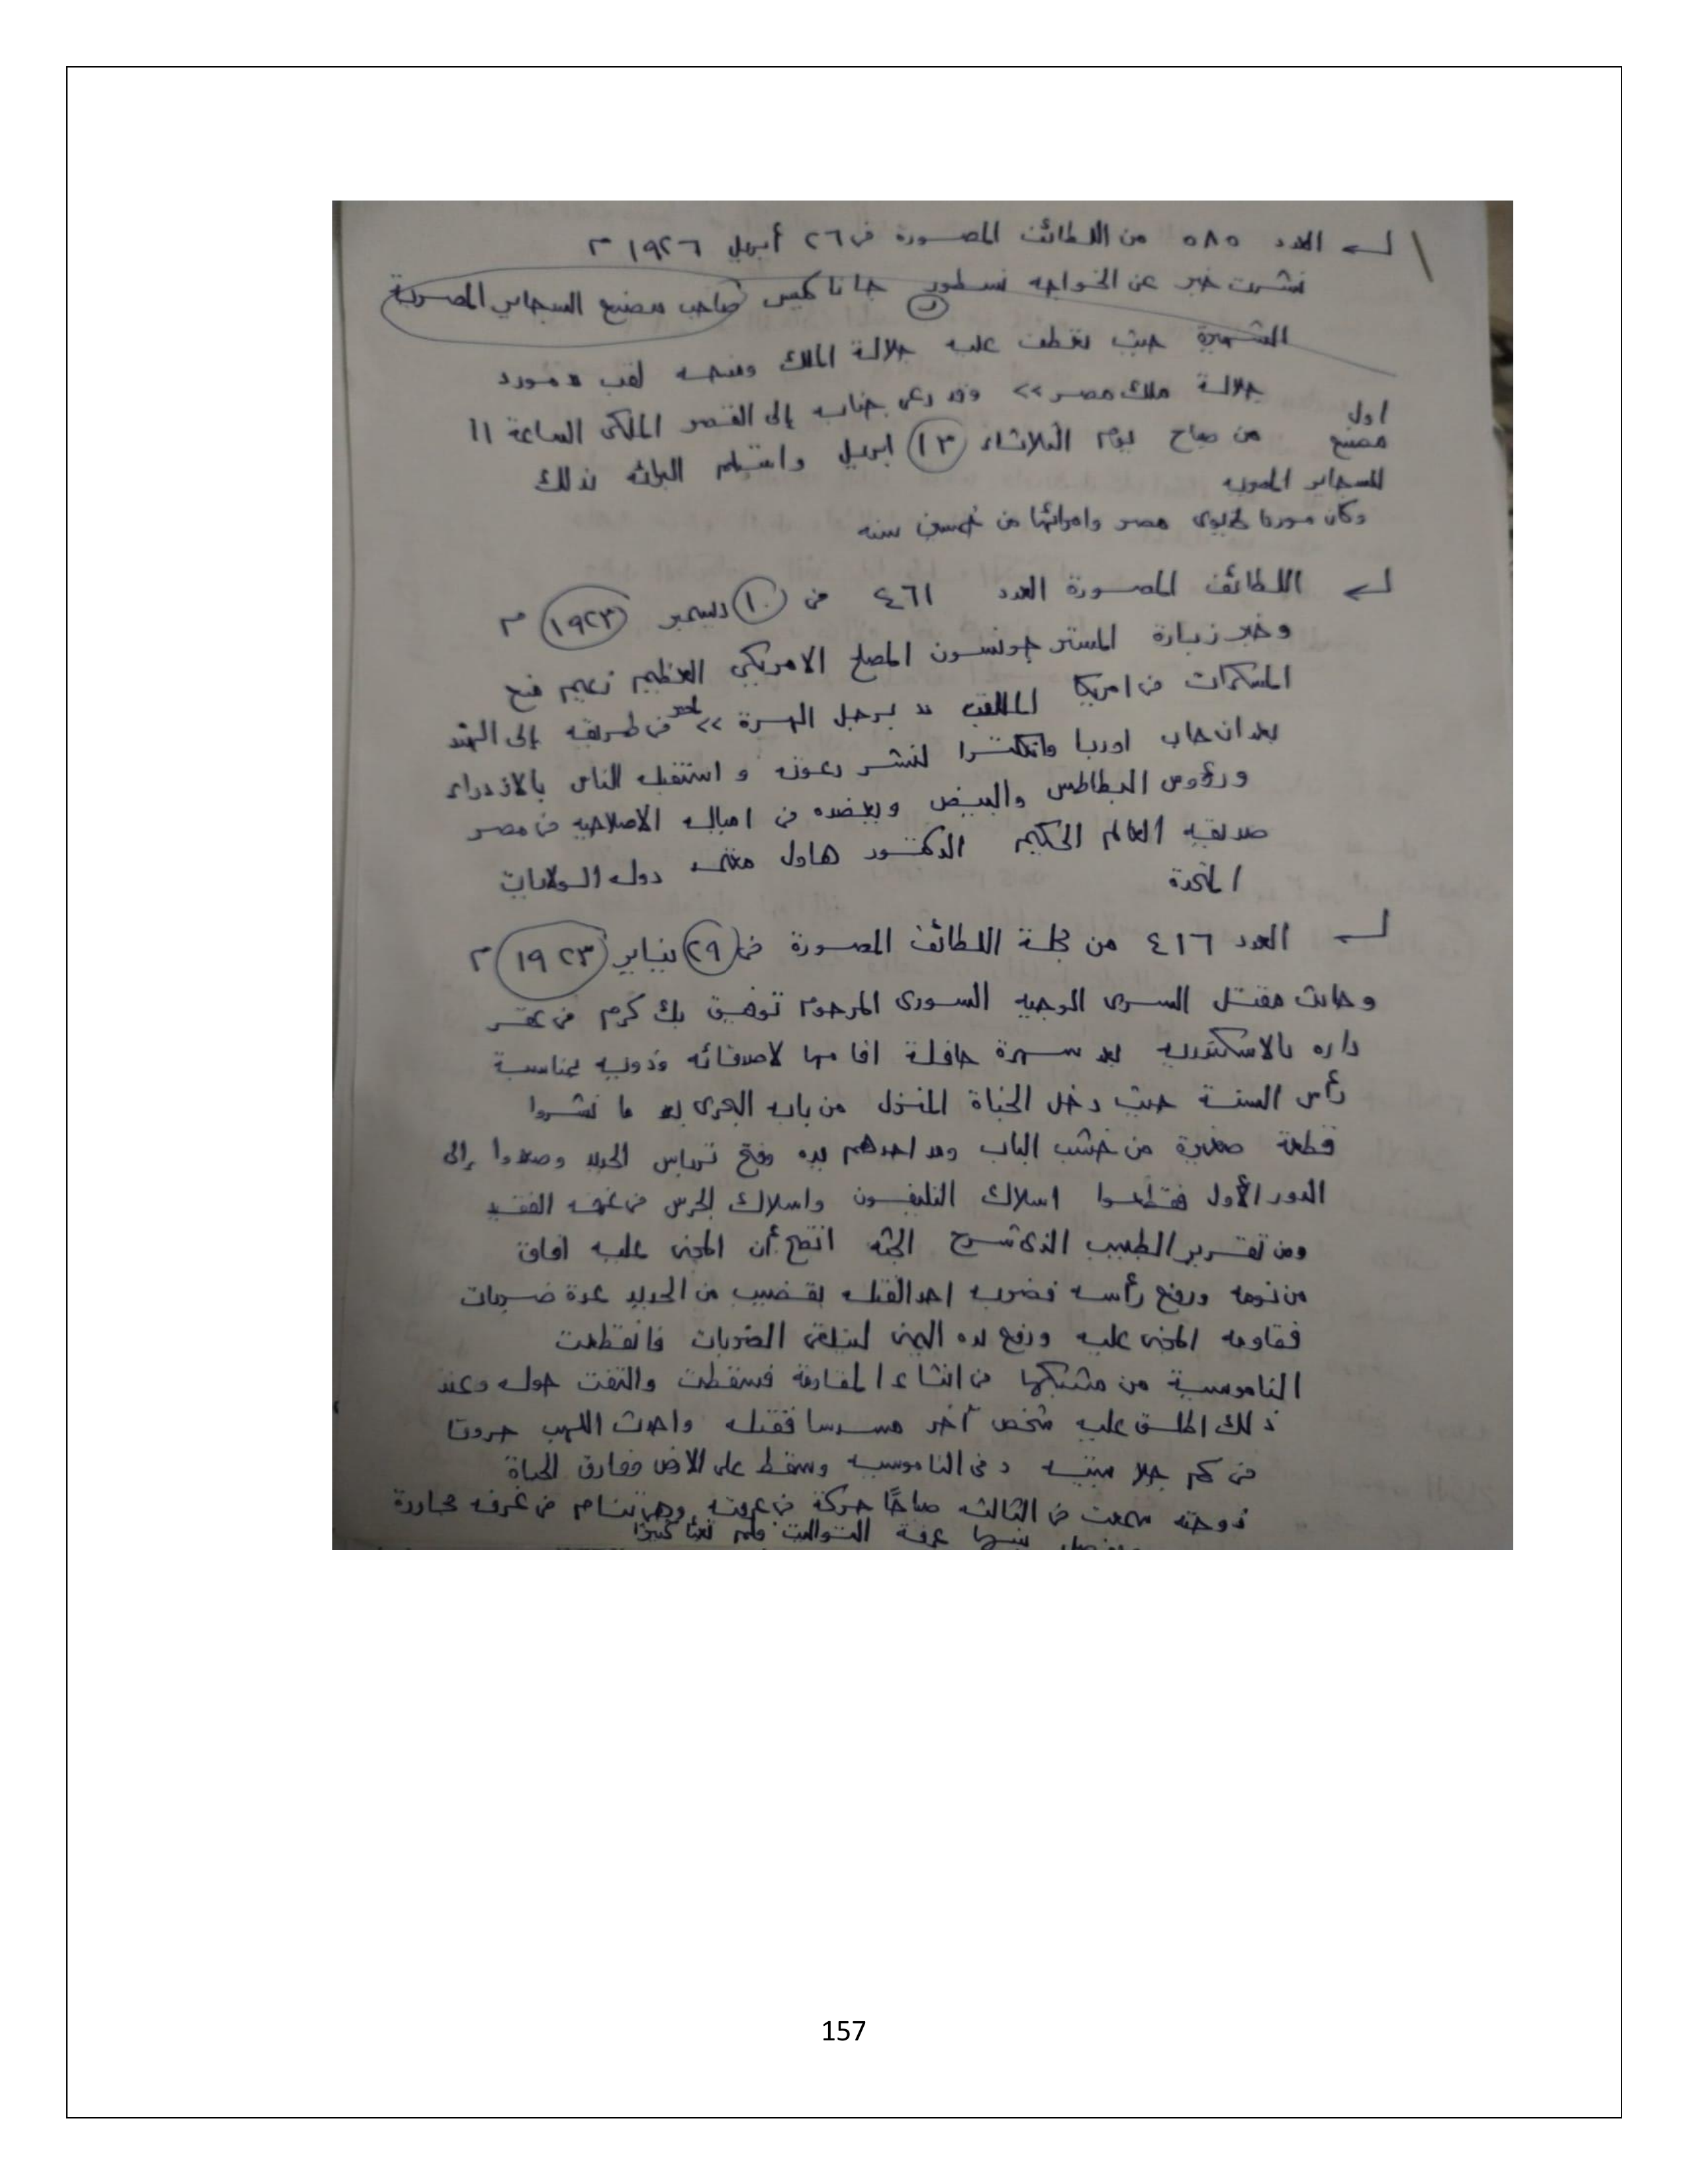 العدد ٥٨٥ من اللطائف المصورة فى ٢٦ أبريل ١٩٢٦ م
نشرت خبر عن الخواجه نسطور جاناكليس صاحب مصنع السجاير المصرية
الشهيرة حيث تعطف عليه جلالة الملك ومنحه لقب « مورد
جلالة ملك مصر » وقد دعى جنابه إلى القصر الملكى الساعة ١١
اول
مصنع
من صباح يوم الثلاثاء ١٣ ابريل واستلم البراءه بذلك
للسجاير المصريه
وكان موردا لخديوى مصر وامرائها من خمسين سنه
اللطائف المصورة العدد ٤٦١ فى ١٠ ديسمبر ١٩٢٣ م
وخبر زيارة المستر جونسون المصلح الامريكى العظيم زعيم منع
المسكرات فى امريكا الملقب « برجل الهرة » لمصر فى طريقه إلى الهند
بعد ان جاب اوربا وانكلترا لنشر دعوته و استقبله الناس بالازدراء
ورؤوس البطاطس والبيض ويعضده فى اعماله الاصلاحيه فى مصر
صديقه العالم الحكيم الدكتور هاول معتمد دولة الولايات
المتحدة
العدد ٤١٦ من مجلة اللطائف المصورة فى ٢٩ يناير ١٩٢٣ م
وحادث مقتل السرى الوجيه السورى المرحوم توفيق بك كرم فى عقر
داره بالاسكندريه بعد سهرة حافلة اقامها لاصدقائه وذويه بمناسبة
رأس السنة حيث دخل الجناة المنزل من باب البحرى بعد ما نشروا
قطعة صغيرة من خشب الباب ومد احدهم يده وفتح ترباس الحديد وصعدوا إلى
الدور الأول فقطعوا اسلاك التليفون واسلاك الجرس فى غرفه الفقيد
ومن تقرير الطبيب الذى شرح الجثه اتضح أن المجنى عليه افاق
من نومه ورفع رأسه فضربه احد القتله بقضيب من الحديد عدة ضربات
فقاومه المجنى عليه ورفع يده اليمنى ليتلقى الضربات فانقطعت
الناموسية من مشبكها فى اثناء المقاومة فسقطت والتفت حوله وعند
ذلك اطلق عليه شخص آخر مسدسا فقتله واحدث اللهب حروقا
فى كم جلابيته و فى الناموسيه وسقط على الارض وفارق الحياة
زوجته سمعت فى الثالثه صباحًا حركة فى غرفته وهى تنام فى غرفه مجاورة
بينهما غرفة التواليت ولم تعبأ كثيرًا
157